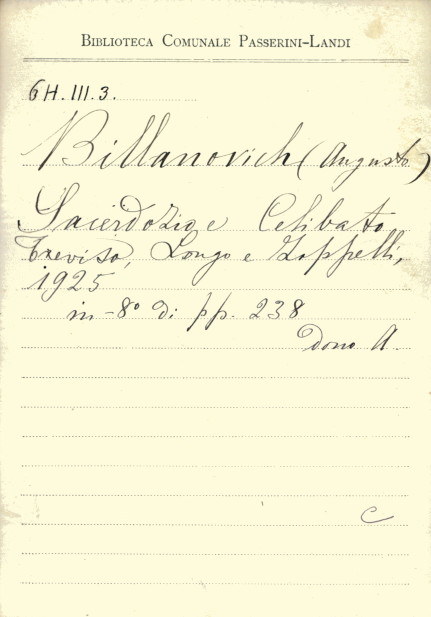 BIBLIOTECA COMUNALE PASSERINI-LANDI
6H.III.3.
Billanovich (Augusto)
Sacerdozio e Celibato
Treviso, Longo e Zoppelli,
1925
in-8° di pp. 238
dono A.
C